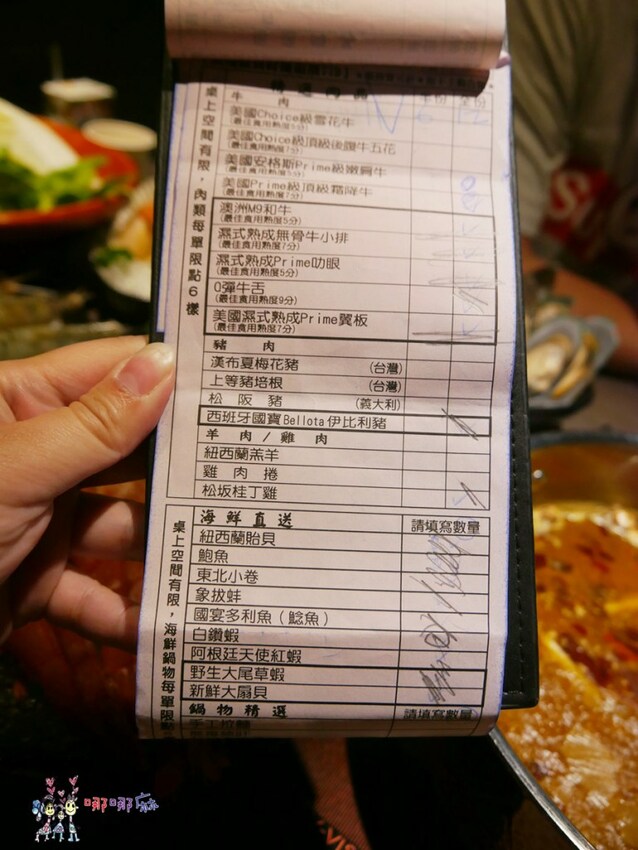 牛肉
半份 全份
美國Choice級雪花牛
(最佳食用熟度5分)
美國Choice級頂級後腹牛五花
(最佳食用熟度7分)
美國安格斯Prime級嫩肩牛
(最佳食用熟度7分)
美國Prime級頂級霜降牛
(最佳食用熟度7分)
澳洲M9和牛
(最佳食用熟度5分)
濕式熟成無骨牛小排
(最佳食用熟度7分)
濕式熟成Prime肋眼
(最佳食用熟度5分)
Q彈牛舌
(最佳食用熟度9分)
美國濕式熟成Prime翼板
(最佳食用熟度7分)
豬肉
漢布夏梅花豬 (台灣)
上等豬培根 (台灣)
松阪豬 (義大利)
西班牙國寶Bellota伊比利豬
羊肉/雞肉
紐西蘭羔羊
雞肉捲
松坂桂丁雞
桌上空間有限,肉類每單限點6樣
海鮮直送 請填寫數量
紐西蘭貽貝
鮑魚
東北小卷
象拔蚌
國宴多利魚(鯰魚)
白鑽蝦
阿根廷天使紅蝦
野生大尾草蝦
新鮮大扇貝
鍋物精選 請填寫數量
手工拉麵
桌上空間有限,海鮮鍋物每單限點
哪哪麻